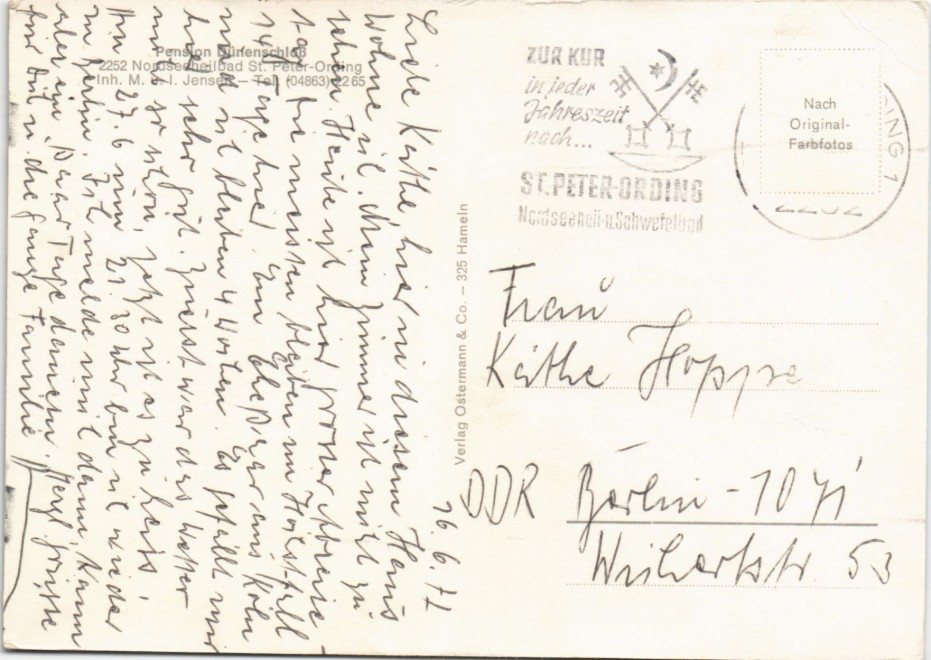 Pension Dünenschloß
2252 Nordseeheilbad St. Peter-Ording
Inh. M. I. Jensen – Tel. (04863) 2265
16. 6. 71
Liebe Käthe, hier in diesem Haus
wohne ich. Mein Zimmer ist nicht zu
sehen. Heute ist hier grosser Abreise
tag. Die meisten bleiben nur
14 Tage hier. Ein Ehepaar aus Köln
und ich bleiben 4 Wochen. Es gefällt mir
hier sehr gut. Zuerst war das Wetter
nicht so schön, jetzt ist es zu heiss.
Am 27.6 um 21.30 Uhr bin ich wieder
in Berlin. Ich melde mich dann, kann
aber ein paar Tage dauern. Herzl. Grüsse
für Dich u. die ganze Familie
Verlag Ostermann & Co. – 325 Hameln
ZUR KUR
in jeder
Jahreszeit
nach...
ST. PETER-ORDING
Nordseeheil-u.Schwefelbad
Nach
Original-
Farbfotos
DING 1
2252
Frau
Käthe Hoppe
DDR Berlin - 1071
Wichertstr. 53